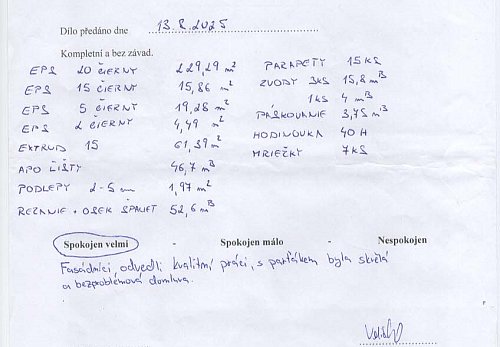 Dílo předáno dne 13.8.2025
Kompletní a bez závad.
EPS 20 ČIERNY 229,29 m²
EPS 15 ČIERNY 15,86 m²
EPS 5 ČIERNY 19,28 m²
EPS 2 ČIERNY 4,49 m²
EXTRUD 15 61,39 m²
APO LIŠTY 46,7 mB
PODLEPY 2-5 cm 1,97 m²
REZANIE + OSEK ŠPALIET 52,6 mB
PARAPETY 15 KS
ZVODY 3KS 15,8 mB
1KS 4 mB
PÁSKOVANIE 3,75 mB
HODINOVKA 40 H
MRIEŽKY 7KS
Spokojen velmi - Spokojen málo - Nespokojen
Fasádníci odvedli kvalitní práci, s parťákem byla skvělá
a bezproblémová domluva.